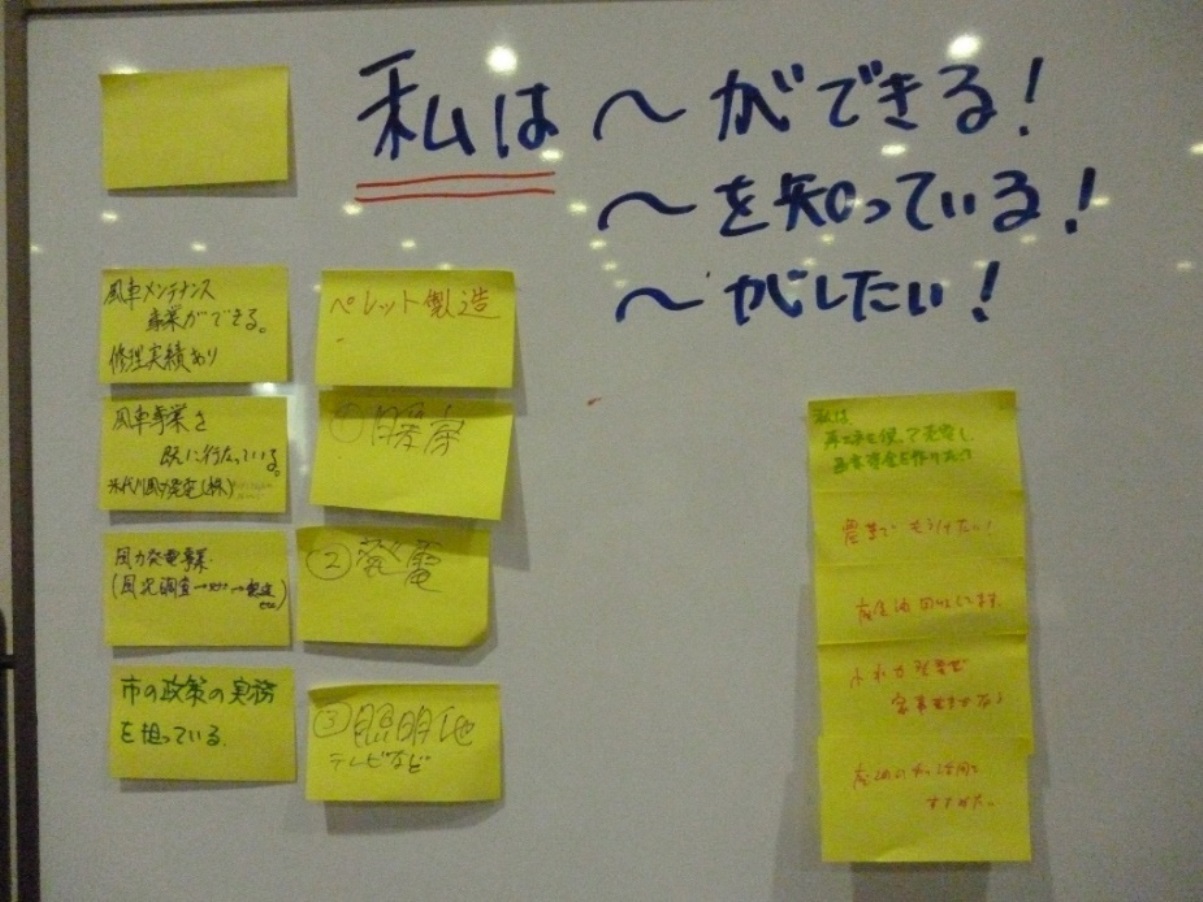 私は 〜ができる!
〜を知っている!
〜がしたい!
風車メンテナンス
事業ができる。
修理実績あり
風車事業を
既に行なっている。
米代川風力発電(株)
風力発電事業
(風況調査→→建設
etc)
市の政策の実務
を担っている.
ペレット製造
①暖房
②発電
③照明他
テレビなど
私は、
再エネを使って売電し、
事業資金を作りたい
もうけたい!
廃食油回収してます.